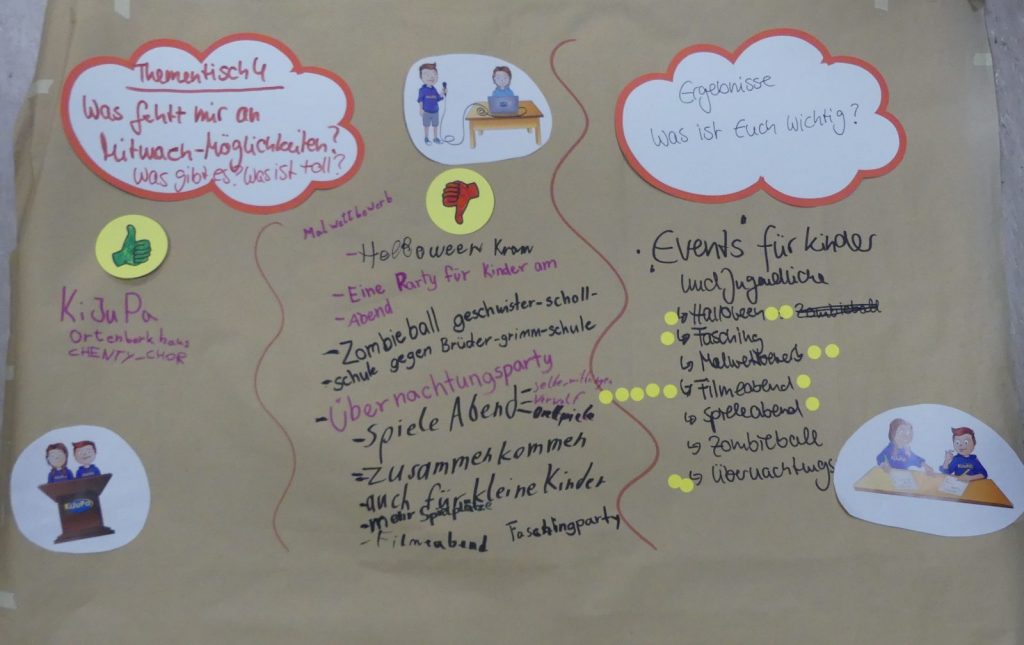 Thementisch 4
Was fehlt mir an
Mitmach-Möglichkeiten?
Was gibt es? Was ist toll?
KiJuPa
Ortenberkhaus
CHENTY_CHOR
KiJuPa
Malwettbewerb
- Holloween Kram
- Eine Party für Kinder am
- Abend
- Zombieball geschwister-scholl-
- schule gegen Brüder-grimm-schule
- Übernachtungsparty
- Spiele Abend
- Zusammenkommen
- auch für kleine Kinder
- mehr Spielplätze
- Filmeabend Faschingparty
Ergebnisse
Was ist Euch wichtig?
"Events" für Kinder
und Jugendliche
↳ Halloween Zombieball
↳ Fasching
↳ Malwettbewerb
↳ Filmeabend
↳ Spieleabend
↳ Zombieball
↳ Übernachtungs